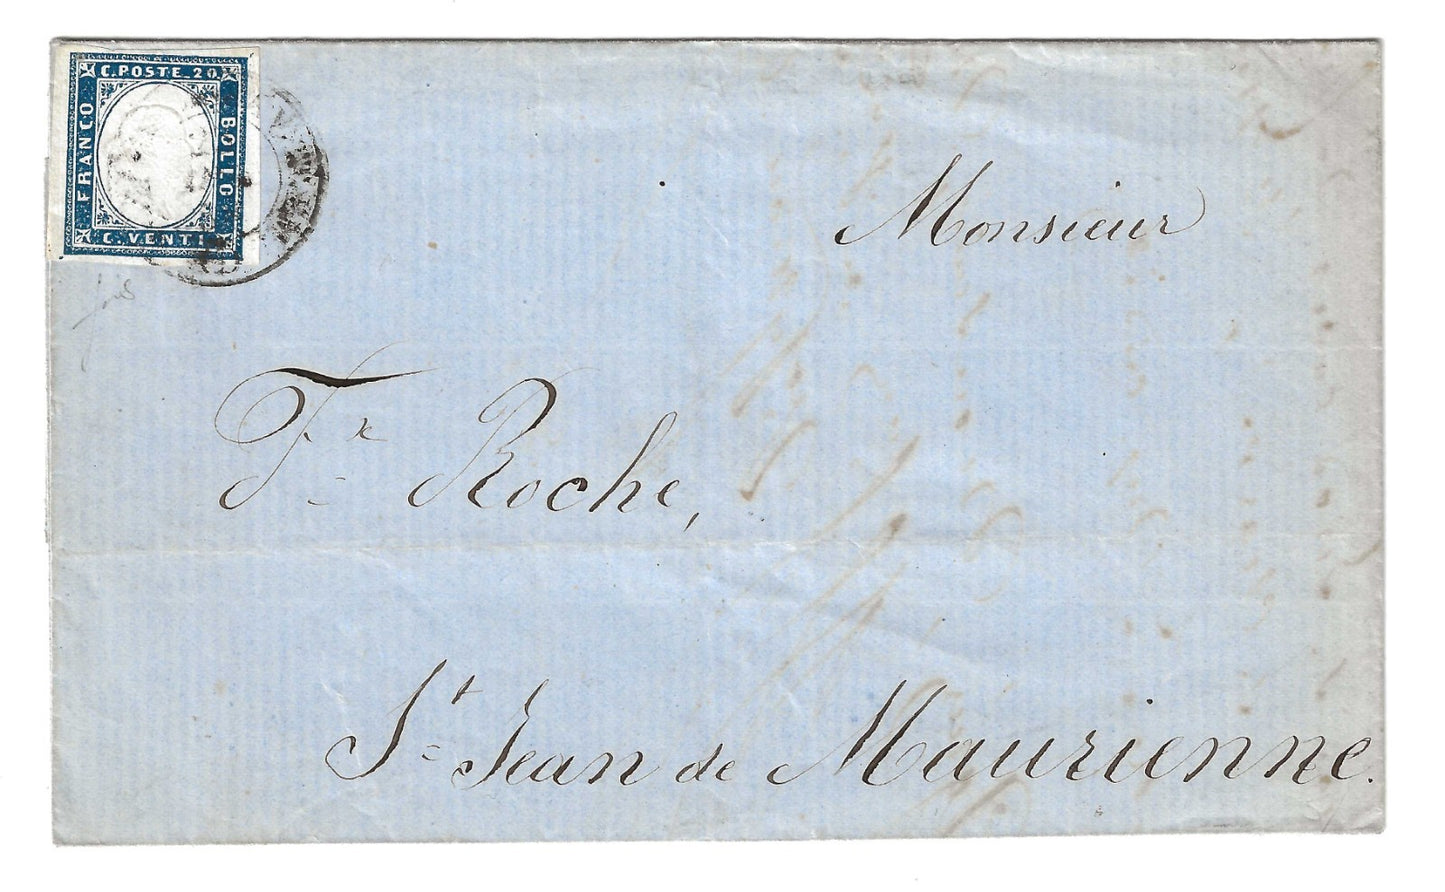 C. POSTE 20
FRANCO
BOLLO
C. VENTI
Monsieur
Fx Roche,
St Jean de Maurienne.